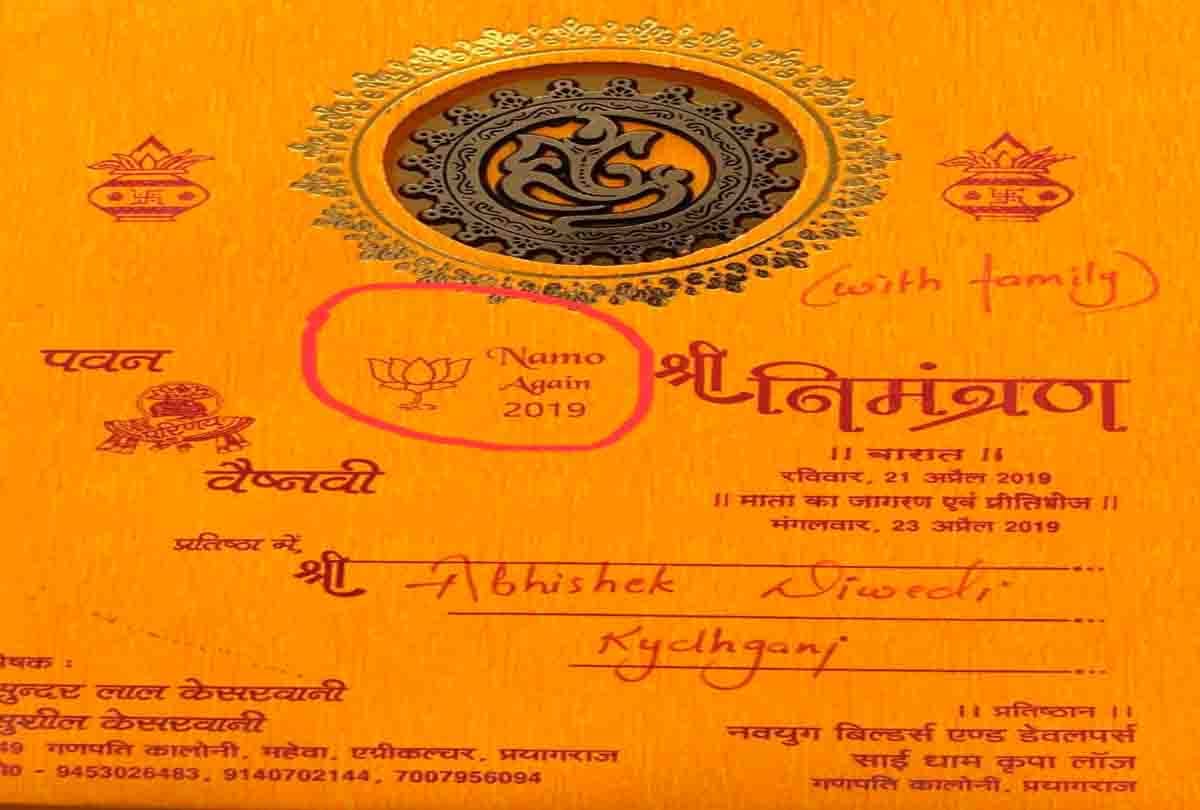 (with family)
पवन
Namo
Again
2019
श्री निमंत्रण
परिणय
वैष्नवी
|| बारात ||
रविवार, 21 अप्रैल 2019
|| माता का जागरण एवं प्रीतिभोज ||
मंगलवार, 23 अप्रैल 2019
प्रतिष्ठा में,
श्री Abhishek Diwedi
Kydhganj
प्रेषक :
सुन्दर लाल केसरवानी
सुशील केसरवानी
49 गणपति कालोनी, महेवा, एग्रीकल्चर, प्रयागराज
मो0 - 9453026483, 9140702144, 7007956094
|| प्रतिष्ठान ||
नवयुग बिल्डर्स एण्ड डेवलपर्स
साई धाम कृपा लॉज
गणपति कालोनी, प्रयागराज